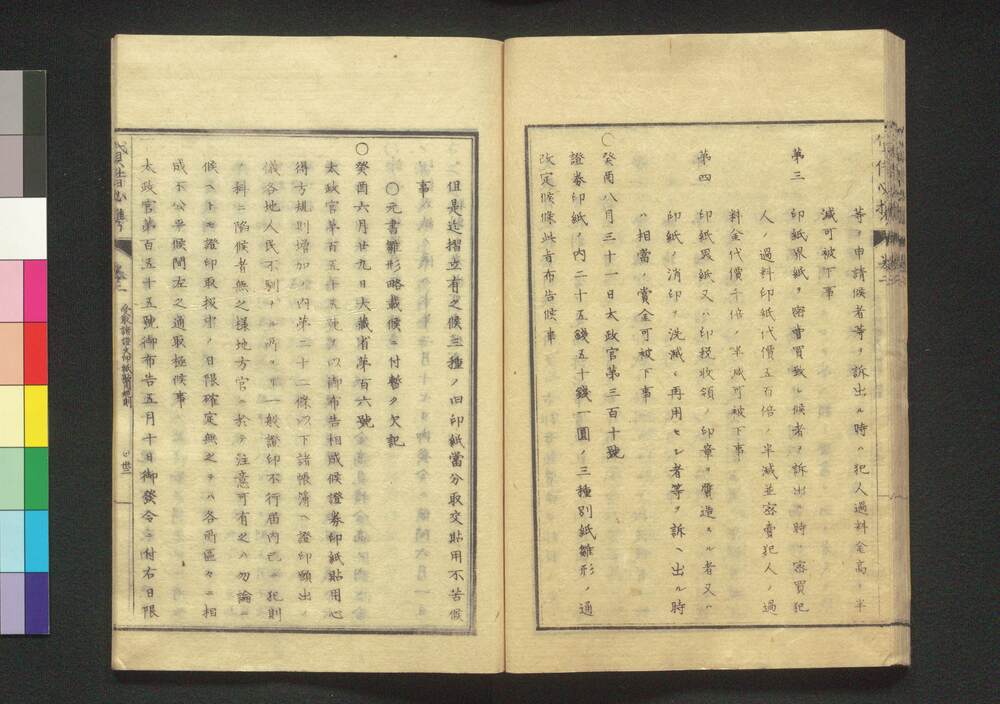 等ヲ申請候者等ヲ訴出ル時ハ犯人過料金高ノ半
減可被下事
第三 印紙界紙ヲ密嘗買致シ候者ヲ訴出ル時ハ密買犯
人ノ過料印紙代價五百倍ノ半減並密賣犯人ノ過
料金代價千倍ノ半減可被下事
第四 印紙罫紙又ハ印税收領ノ印章ヲ贋造スル者又ハ
印紙ノ消印ヲ洗滅シ再用セシ者等ヲ訴ヘ出ル時
ハ相當ノ賞金可被下事
〇癸酉八月三十一日太政官第三百十號
證券印紙ノ内二十五錢五十錢一圓ノ三種別紙雛形ノ通
改定候條此旨布告候事
但是迄摺立有之候三種ノ旧印紙當分取交貼用不苦候
事
〇元書雛形略載候ニ付暫ク欠記
〇癸酉六月廿九日大藏省第百六號
太政官第百五十五號ヲ以御布告相成候證券印紙貼用心
得方規則増加ノ内第二十二條以下諸帳簿ヘ證印願出ノ
儀各地人民不別ノ 一般證印不行届内已ニ犯則
ノ科ニ陥候者無之樣地方官ニ於テ注意可有之ハ勿論ニ
候ヘトモ證印取扱 ノ日限確定無之テハ各所區々ニ相
成不公平候間左之通取極候事
太政官第百五十五號御布告五月十日御發令ニ付右日限
受取諸證文印紙貼用規則